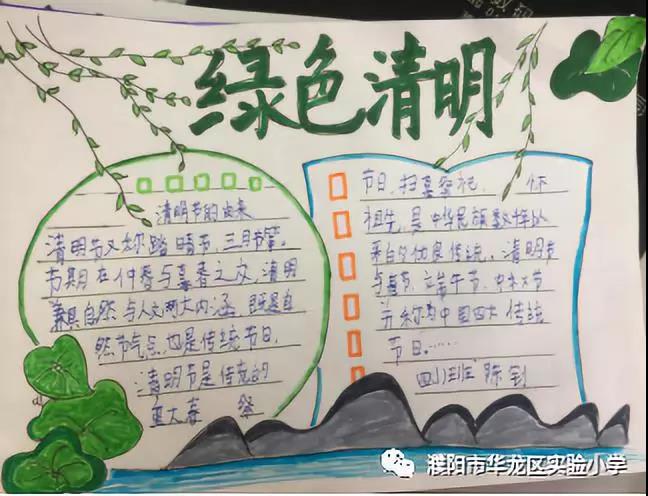 绿色清明
清明节的由来
清明节又称踏晴节,三月节等。
节期在仲春与暮春之交,清明
兼具自然与人文两大内涵,既是自
然节气点,也是传统节日,
清明节是传统的
重大春 祭
节日,扫墓祭祀, 怀
祖先,是中华民族数千年以
来的优良传统,清明节
与春节、端午节、中秋节
并称为中国四大传统
节日。……
四班 陈
濮阳市华龙区实验小学